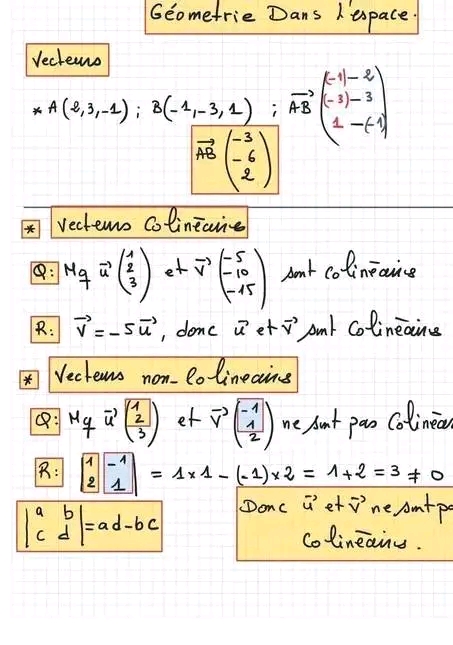 Géometrie Dans l'espace.
Vecteurs
* A(2,3,-1) ; B(-1,-3,1) ; AB→ ((-1)-2 (-3)-3 1-(-1))
AB→ (-3 -6 2)
* Vecteurs Colinéaires
Q: Mq u→ (1 2 3) et v→ (-5 -10 -15) sont Colinéaires
R: v→ = -5u→, donc u→ et v→ sont Colinéaires
* Vecteurs non-Colineaires
Q: Mq u→ (1 2 3) et v→ (-1 1 2) ne sont pas Colinéa
R: |1 -1 2 1| = 1×1 - (-1)×2 = 1+2 = 3 ≠ 0
|a b c d| = ad-bc
Donc u→ et v→ ne sont pa
Colinéairs.